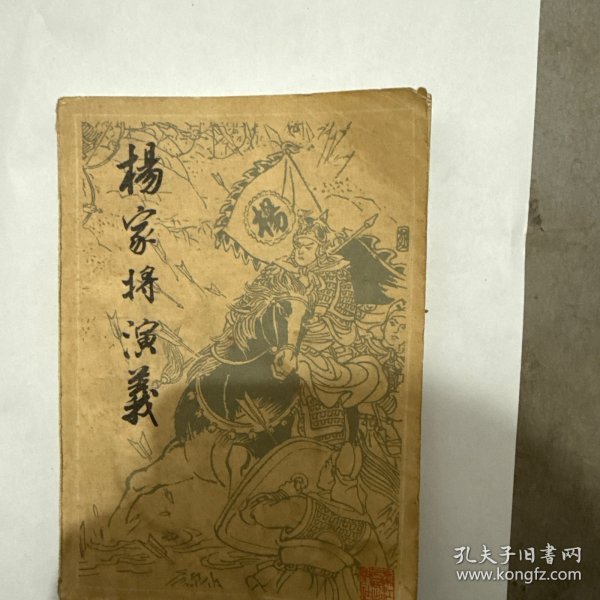 楊家将演義
楊
孔夫子旧書网
www.kongfz.com